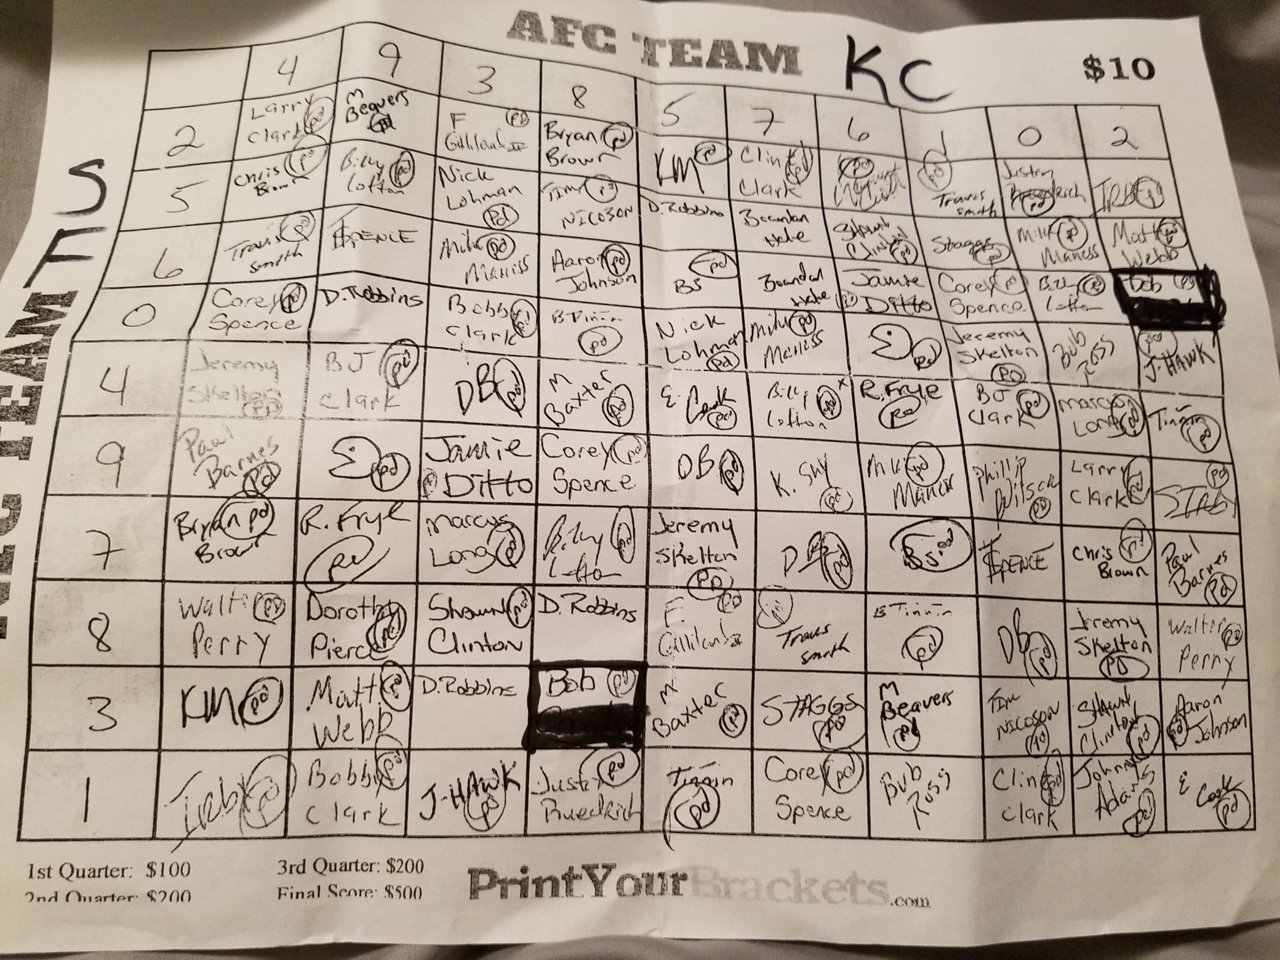 AFC TEAM KC
$10
4 9 3 8 5 7 6 1 0 2
SF
TEAM
2
Larry Clark pd
M Beavers pd
F Gilliland II pd
Bryan Brown pd
KM pd
Clint Clark pd
pd
Travis Smith pd
Justin pd
pd
5
Chris Brown pd
Billy Lofton pd
Nick Lohman pd
Tim Nicoson pd
D. Robbins
Brandon Hale
Shawn Clinton pd
Staggs pd
Mike Maness pd
Matt Webb pd
6
Travis Smith pd
$PENCE
Mike Maness pd
Aaron Johnson pd
BJ pd
Brandon Hale
Jamie Ditto pd
Corey Spence pd
Billy Lofton pd
Bob pd
0
Corey Spence pd
D. Robbins
Bobby Clark pd
B Tinnin pd
Nick Lohman pd
Mike Maness pd
pd
Jeremy Skelton PD
Bob Ross
J-HAWK pd
4
Jeremy Skelton PD
BJ Clark pd
DB pd
M Baxter pd
E. Cook pd
Billy Lofton pd
R. Frye Pd
BJ Clark pd
Marcus Long pd
Tinnin pd
9
Paul Barnes pd
pd
Jamie Ditto pd
Corey Spence pd
DB pd
K. Shy pd
Mike Maness pd
Phillip Wilson PD
Larry Clark pd
IRBY pd
7
Bryan Brown pd
R. Frye Pd
Marcus Long pd
Billy Lofton pd
Jeremy Skelton PD
DB pd
BJ pd
$PENCE
Chris Brown pd
Paul Barnes Pd
8
Walter Perry PD
Dorothy Pierce pd
Shawn Clinton pd
D. Robbins
F. Gilliland II PD
Travis Smith pd
B Tinnin pd
DB pd
Jeremy Skelton PD
Walter Perry PD
3
KM pd
Matt Webb pd
D. Robbins
Bob pd
M Baxter pd
STAGGS pd
M Beavers pd
Tim Nicoson pd
Shawn Clinton pd
Aaron Johnson pd
1
Irby pd
Bobby Clark pd
J-HAWK pd
Justin pd
Tinnin pd
Corey Spence pd
Bob Ross
Clint Clark pd
Johnny Adams pd
E Cook pd
1st Quarter: $100 3rd Quarter: $200
2nd Quarter: $200 Final Score: $500
PrintYourBrackets.com